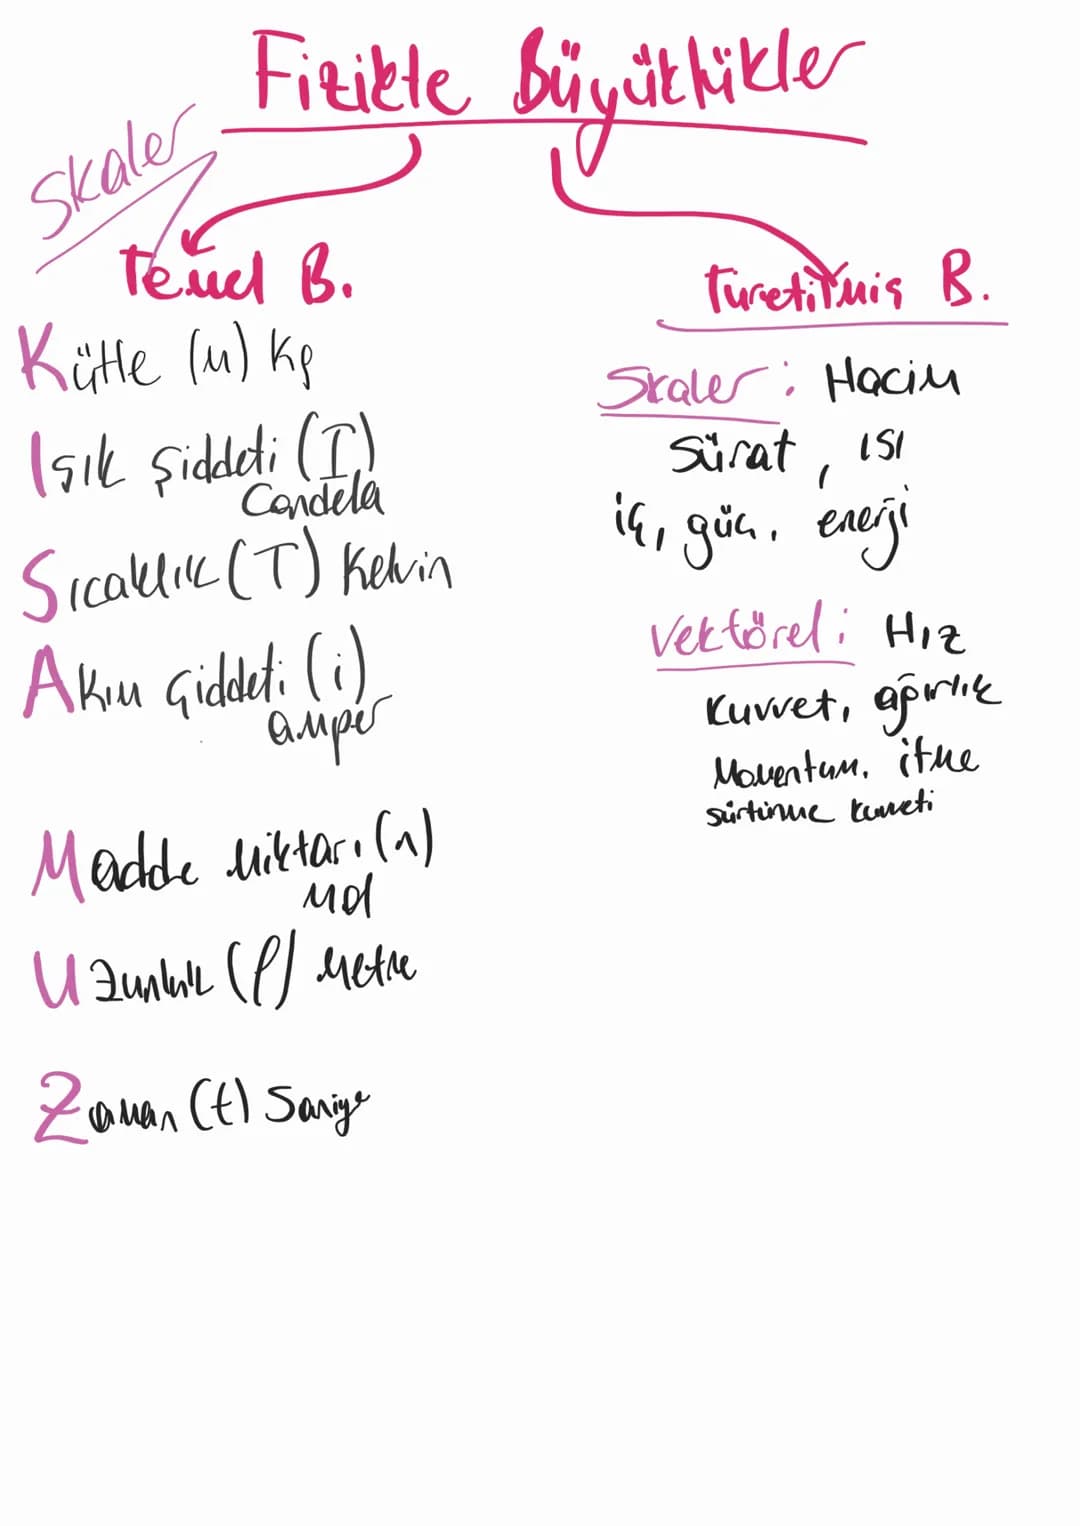 Fizikte Büyüklükler
Skaler
Temel B.
Kütle (m) kg
Işık şiddeti (I)
Candela
Sıcaklık (T) Kelvin
Akım şiddeti (i)
amper
Madde miktarı (n)
mol
Uzunluk (l) metre
Zaman (t) Saniye
Türetilmiş B.
Skaler: Hacim
Sürat, ısı
iş, güç, enerji
Vektörel: Hız
Kuvvet, ağırlık
Momentum, itme
sürtünme kuvveti